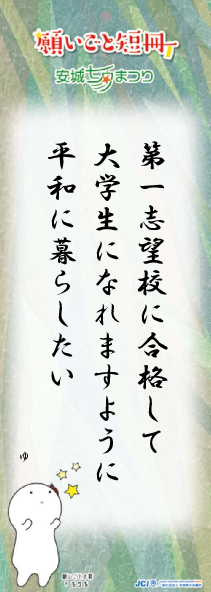 願いごと短冊
安城七夕まつり
第一志望校に合格して
大学生になれますように
平和に暮らしたい
ゆ
JCI